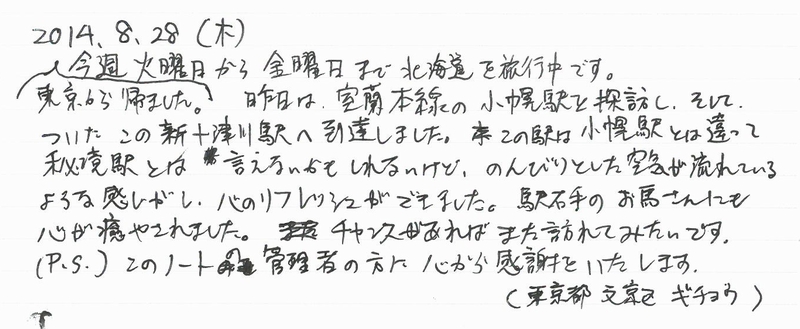 2014.8.28(木)
今週火曜日から金曜日まで北海道を旅行中です。
東京から帰ました。昨日は、室蘭本線の小幌駅を探訪し、そして、
ついたこの新十津川駅へ到達しました。この駅は小幌駅とは違って
秘境駅とは言えないかもしれないけど、のんびりとした空気が流れている
ような感じがし、心のリフレッシュができました。駅右手のお馬さんにも
心が癒やされました。チャンスがあればまた訪れてみたいです。
(P.S.)このノートの管理者の方に心から感謝をいたします。
(東京都 文京区 ギチョウ)